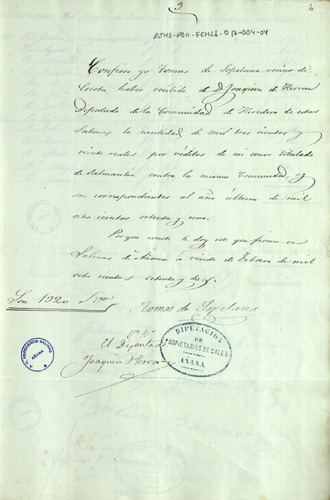 3
6
ATHA-DAH-FCMSA-017-004-04
Confieso yo Tomas de Sopelana vecino de
haber recibido de D. Joaquin de Herran
Diputado de la Comunidad de Herederos de estas
Salinas la cantidad de mil tres cientos y
veinte reales por réditos de mi censo titulado
de Salmanton contra la misma Comunidad, y
son correspondientes al año último de mil
ocho cientos setenta y uno.
Para que conste le doy este que firmo en
Salinas de Añana a veinte de Febrero de mil
ocho cientos setenta y dos.
Son 1320
Tomas de Sopelana
Vº Bº
El Diputado
Joaquin Herran
DIPUTACION
DE
PROPIETARIOS DE SALES
AÑANA
AÑANA